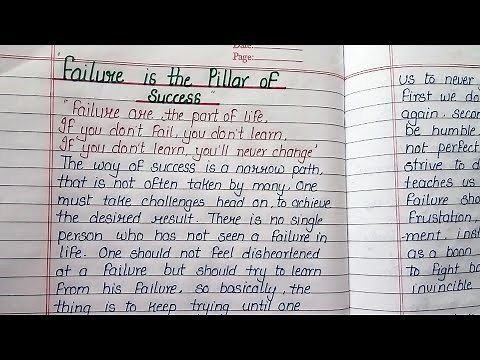 Date:
Page:
"Failure is the Pillar of
Success"
"Failure are the part of life,
If you don't fail, you don't learn,
If you don't learn, you'll never change"
The way of success is a narrow path,
that is not often taken by many. One
must take challenges head on, to achieve
the desired result. There is no single
person who has not seen a failure in
life. One should not feel disheartened
at a failure but should try to learn
from his failure, so basically, the
thing is to keep trying until one
us to never
First we do
again. Secon
be humble
not perfect
strive to d
teaches us
Failure sho
frustation,
-ment. inst
as a boon
to fight ba
invincible